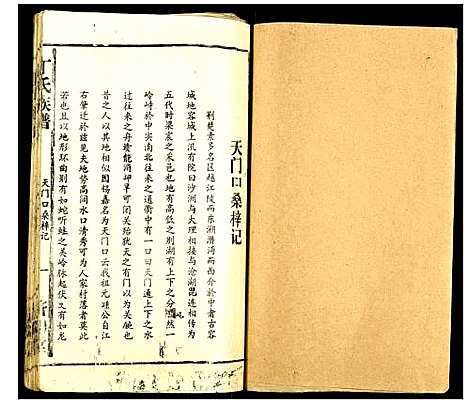 天门口桑梓记
荆楚素多名区越江陵而东湖潜沔而西介於中者古容
城地容城上汛有院曰沙洲与大理相接与沧湖毘连相传为
五代时梁宸之采邑也地有高低之别湖有上下之分然一
岭峙於中实南北往来之通衢中有一口曰天门通上下之水
过往来之舟赉能消岬旱可闭关殆犹天之有门以为关键也
昔之人以其地相似因锡嘉名为天门口云我祖元靖公自江
右肇迁於兹见夫地势高阔水口清秀可为人家村落者莫此
若也且以地形环曲则有如蛇听蛙之美岭脉起伏又有如龙
丁氏族谱
天门口桑梓记
一